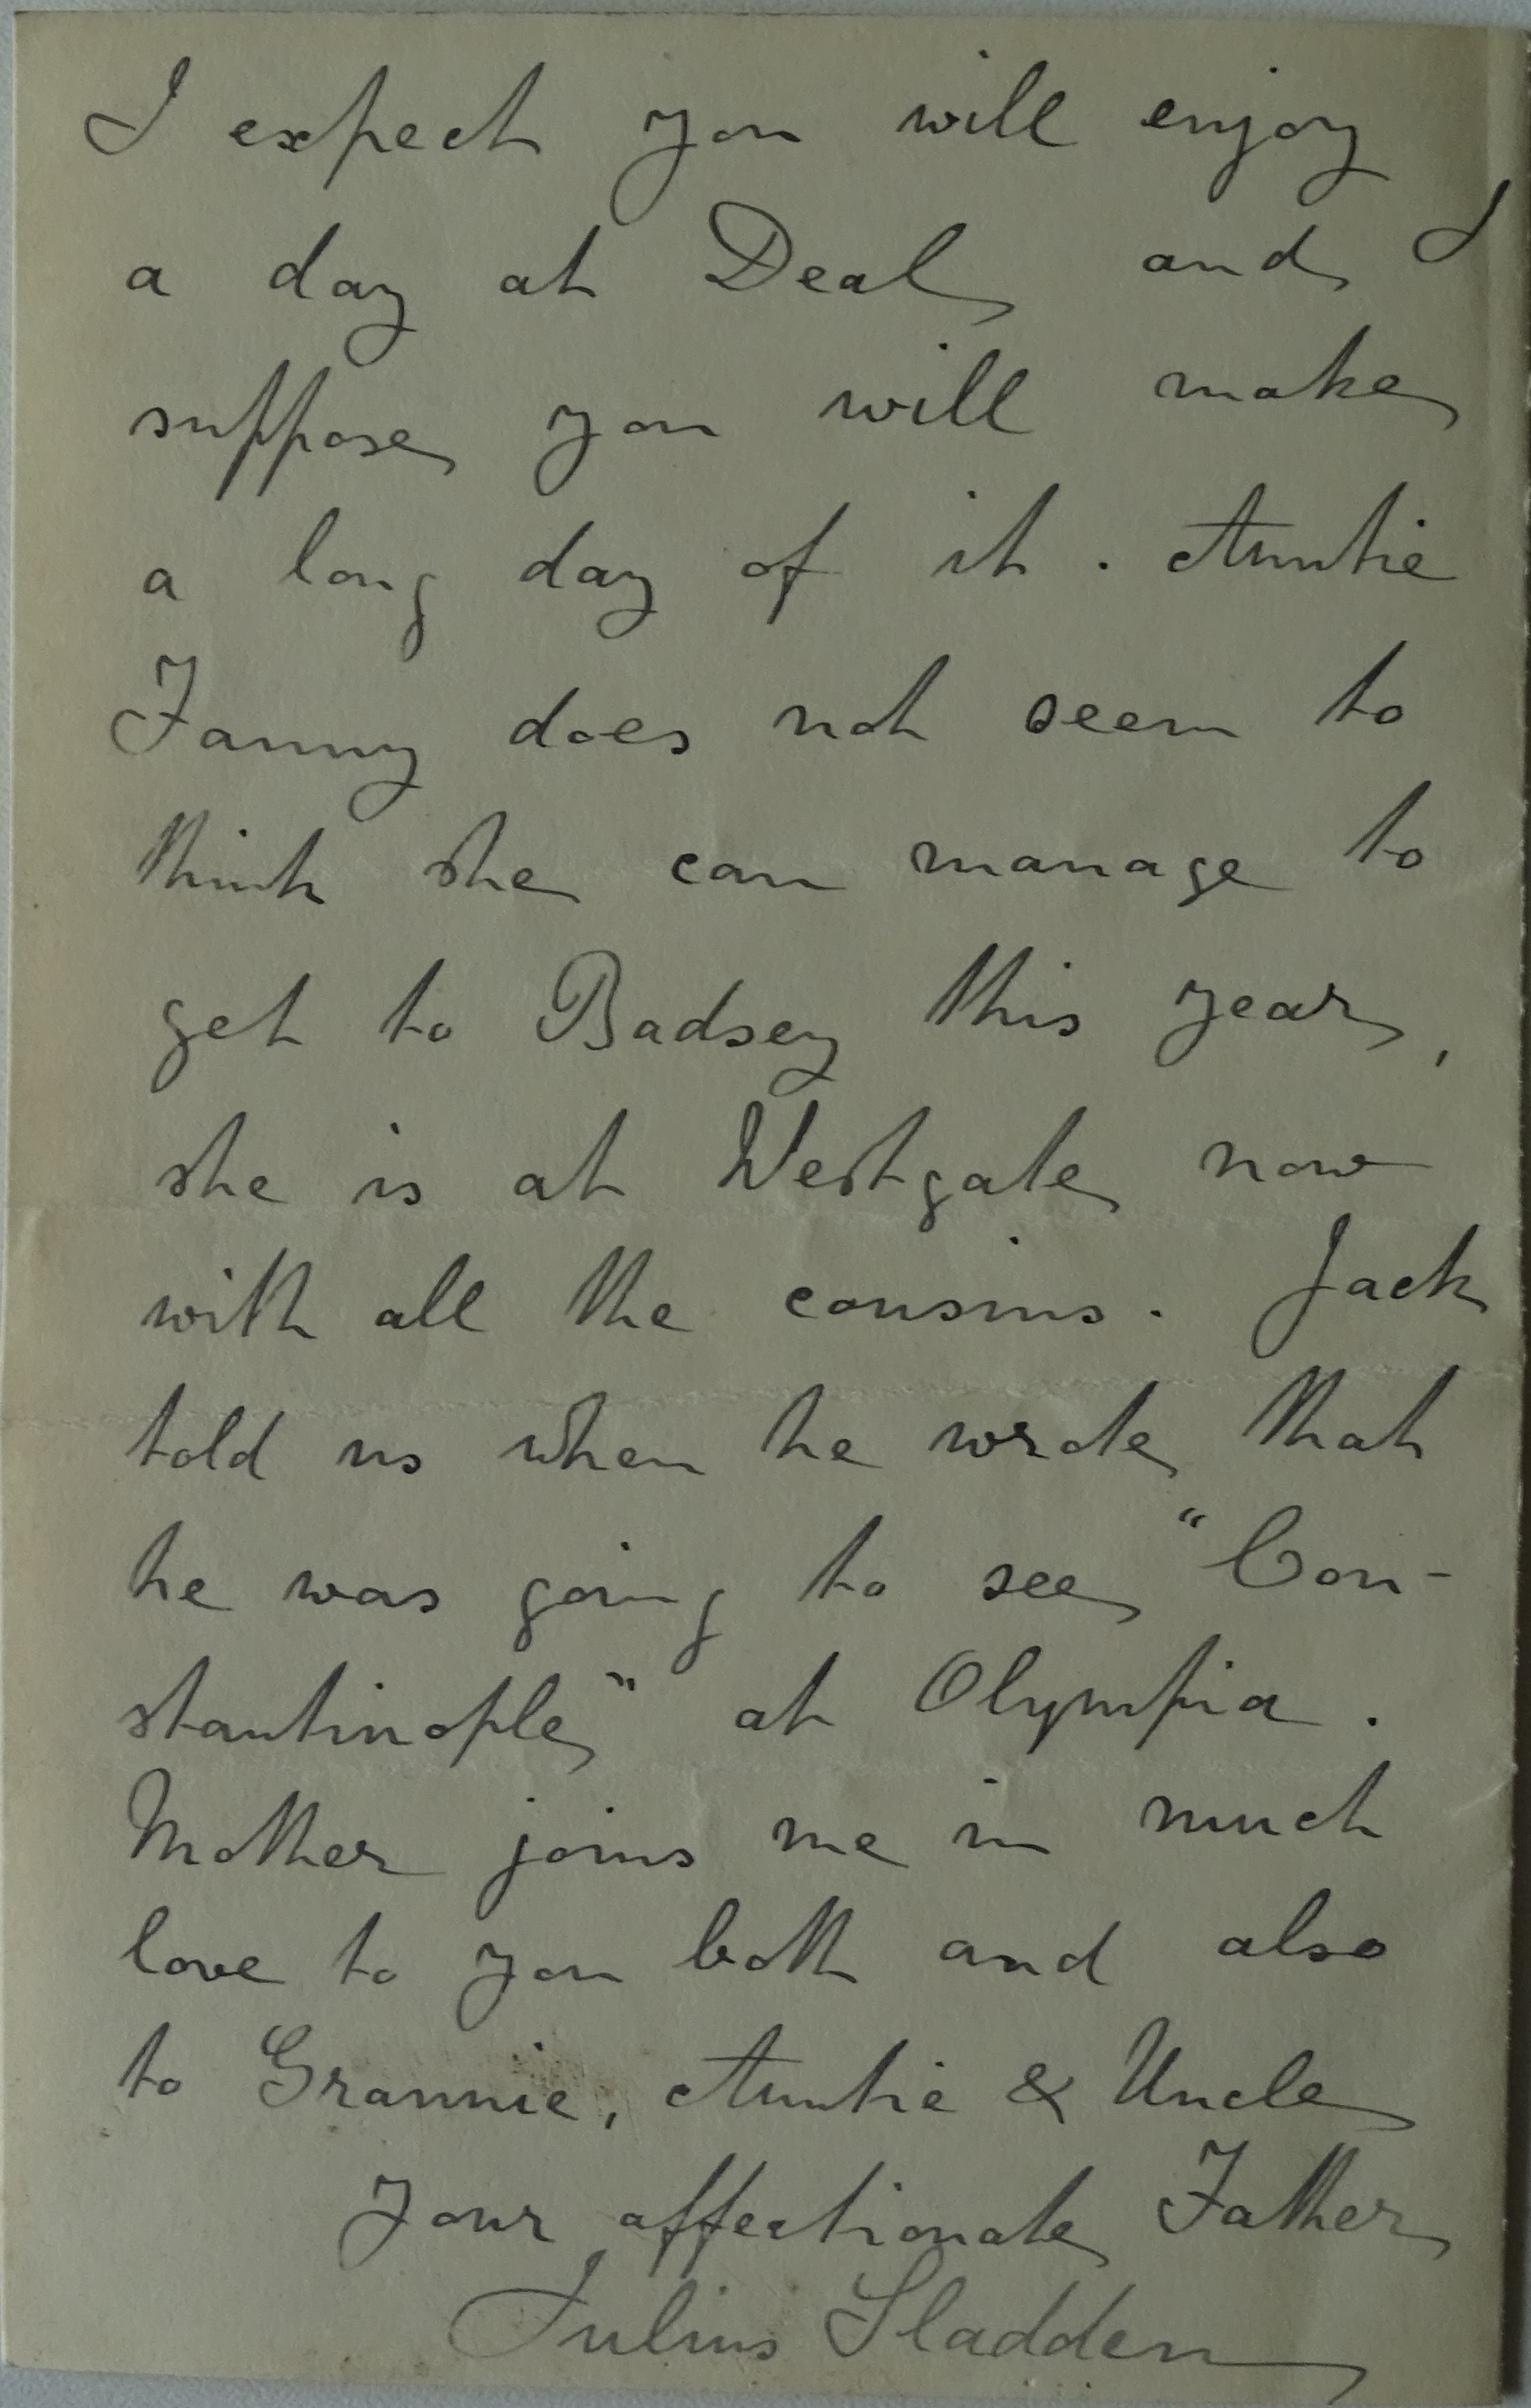 I expect you will enjoy
a day at Deal and I
suppose you will make
a long day of it. Auntie
Fanny does not seem to
think she can manage to
get to Badsey this year,
she is at Westgate now
with all the cousins. Jack
told us when he wrote that
he was going to see "Con-
stantinople" at Olympia.
Mother joins me in much
love to you both and also
to Grannie, Auntie & Uncle
Your affectionate Father
Julius Sladden